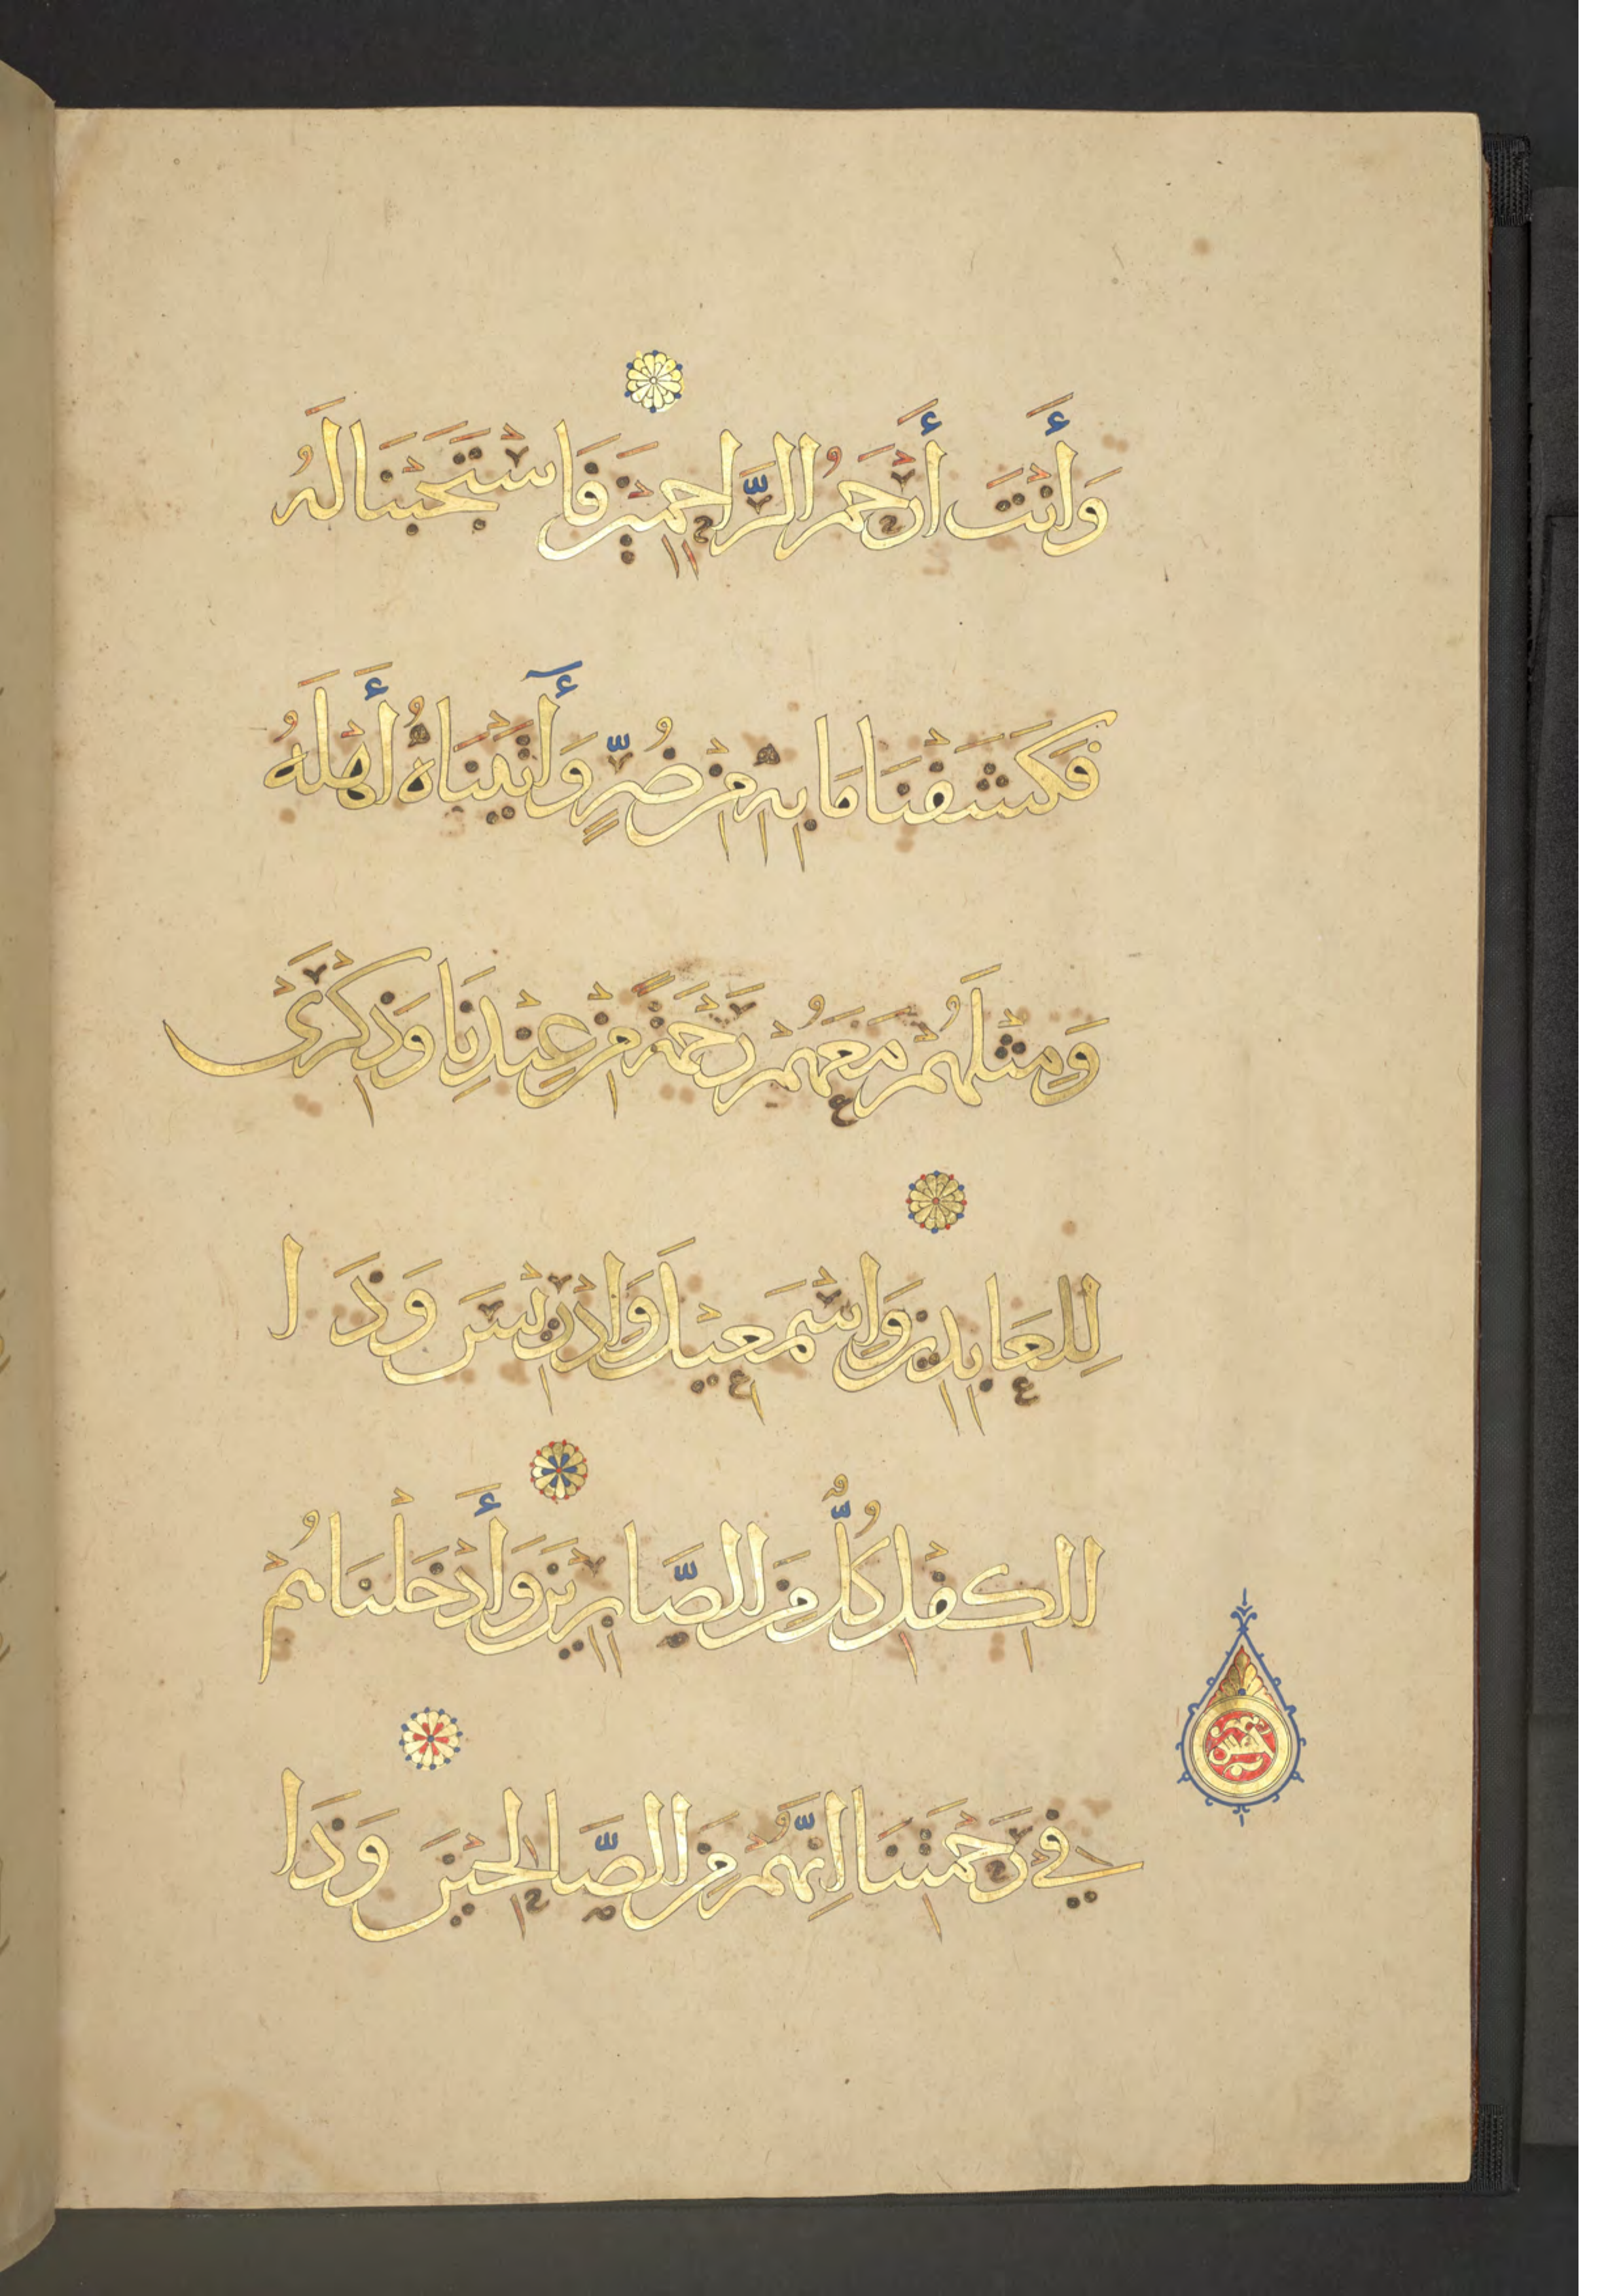 وَأَنْتَ أَرْحَمُ الرَّاحِمِيْنَ فَاسْتَجَبْنَا لَهُ
فَكَشَفْنَا مَا بِهِ مِنْ ضُرٍّ وَأٓتَيْنَاهُ أَهْلَهُ
وَمِثْلَهُمْ مَعَهُمْ رَحْمَةً مِنْ عِنْدِنَا وَذِكْرَىْ
لِلْعَابِدِيْنَ وَاِسْمَعِيْلَ وَاِدْرِيْسَ وَذَا
الْكِفْلِ كُلٌّ مِنَ الصَّابِرِيْنَ وَأَدْخَلْنَاهُمْ
فِيْ رَحْمَتِنَا اِنَّهُمْ مِنَ الصَّالِحِيْنَ وَذَا